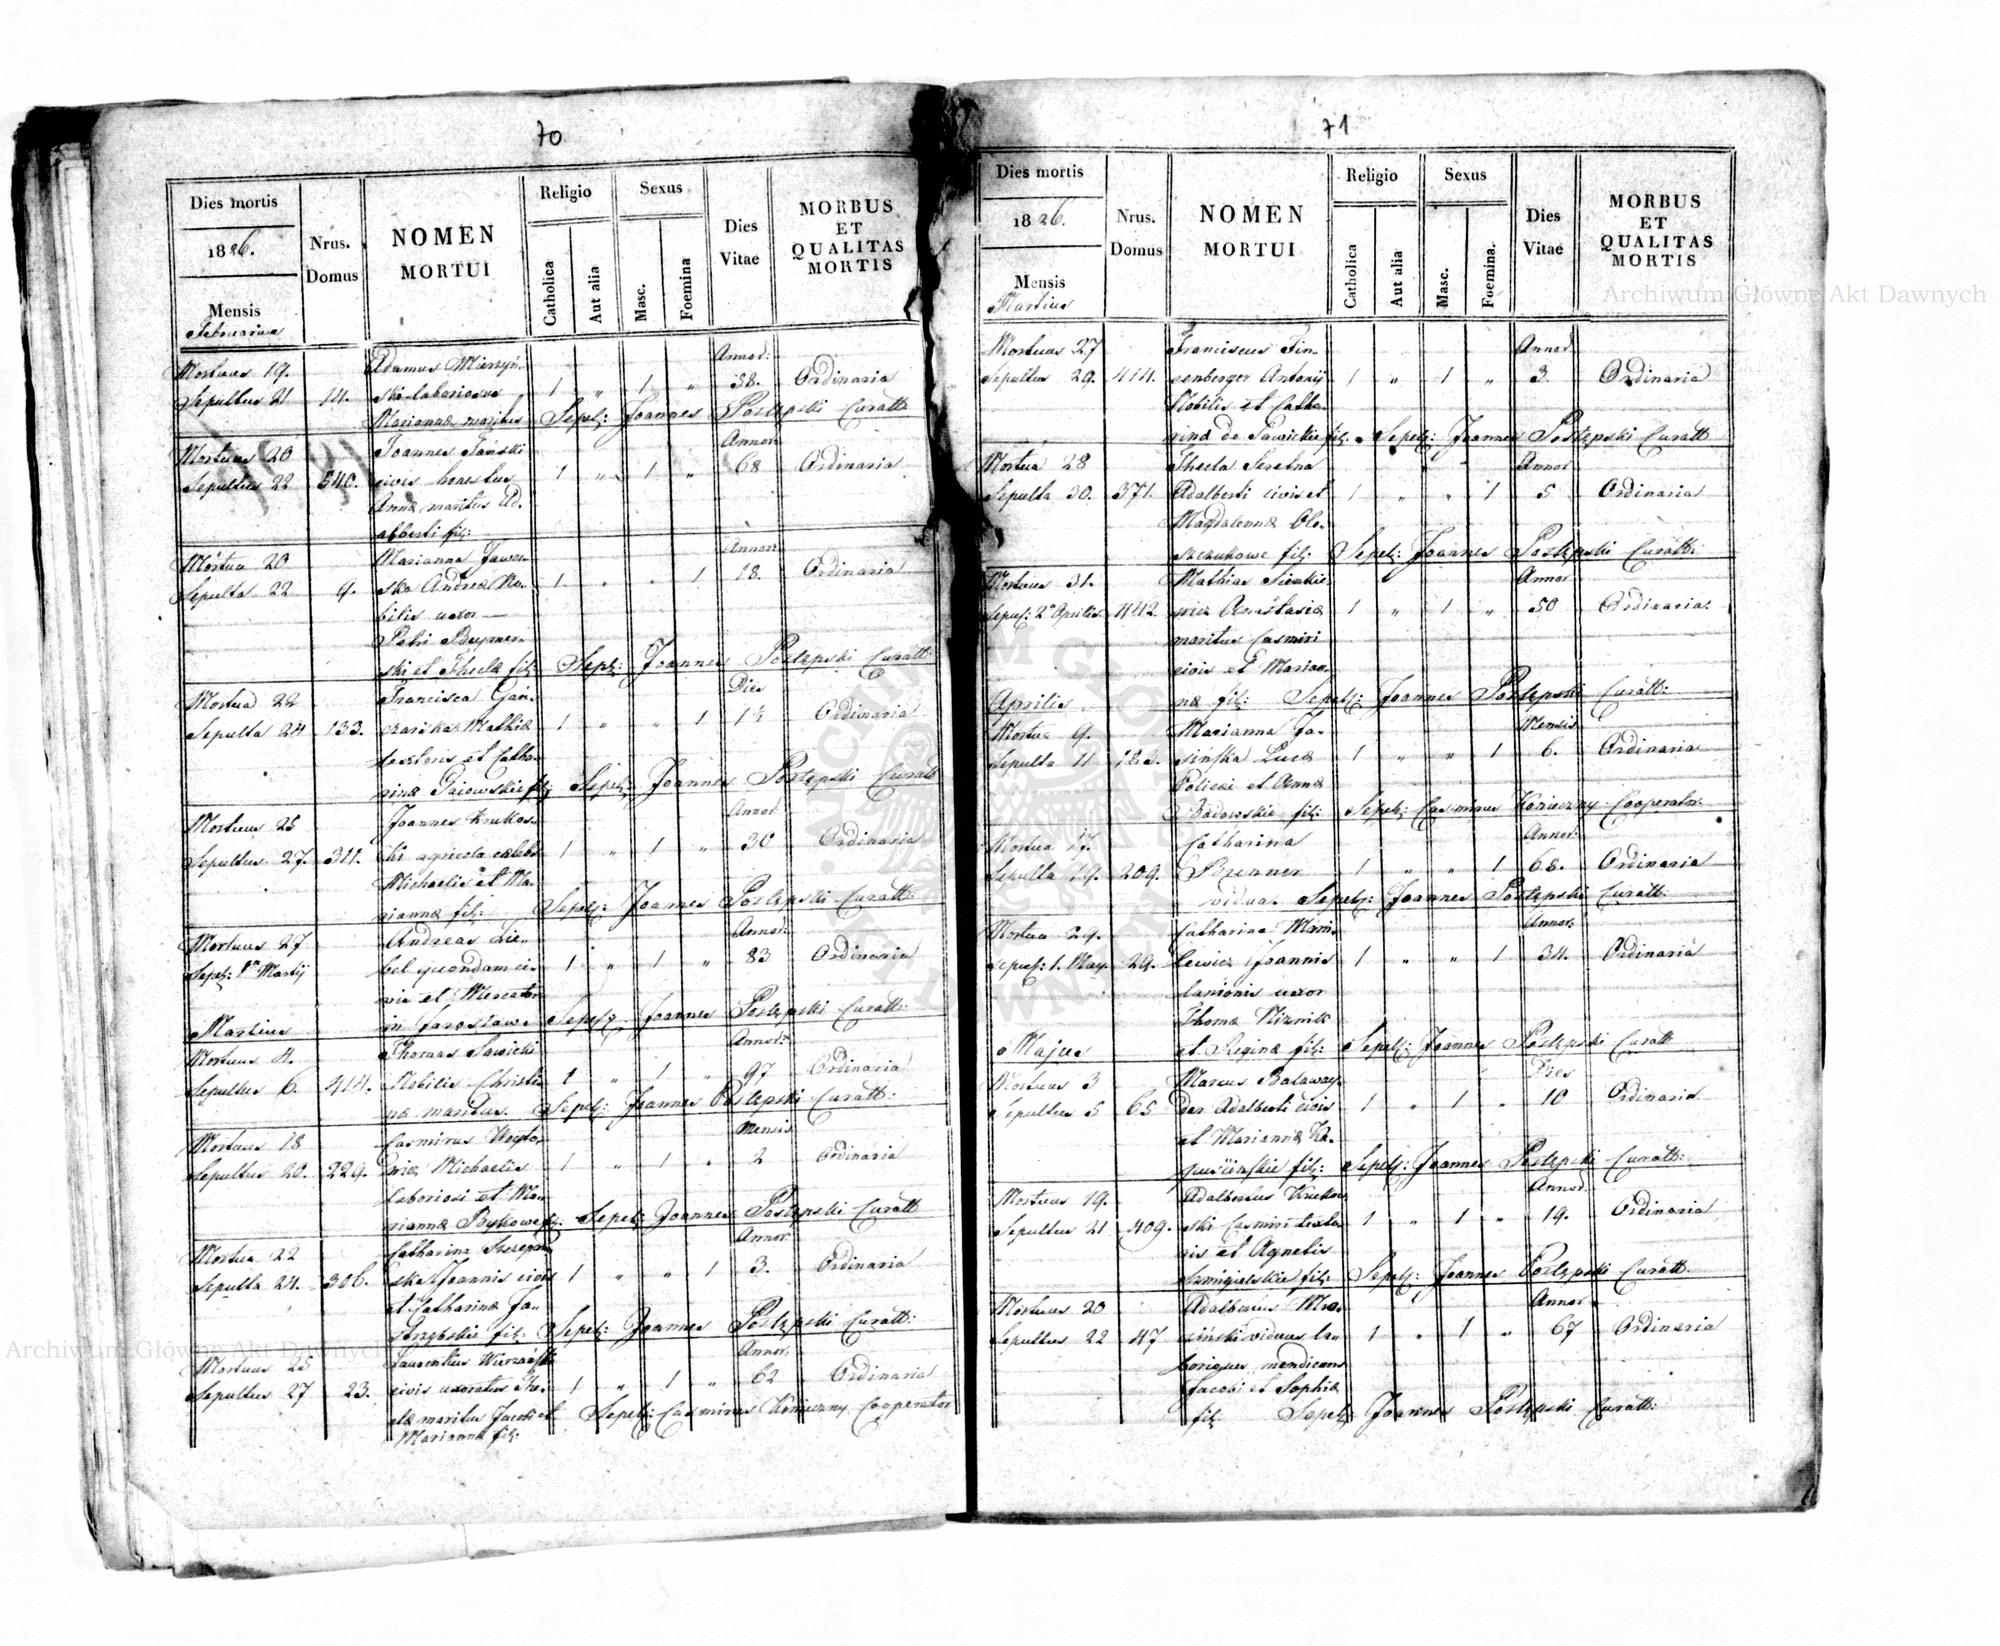 70
Dies mortis
1826.
Mensis
Februarius
Nrus.
Domus
NOMEN
MORTUI
Religio
Catholica
Aut alia
Sexus
Masc.
Foemina
Dies
Vitae
MORBUS
ET
QUALITAS
MORTIS
Mortuus 19.
Adamus
Annor:
Sepultus 21 14. ski laboriosus 1 „ 1 „ 58. Ordinaria
Mariannæ maritus Sepel: Joannes Postępski Curatt:
Mortuus 20 Joannes Annor:
Sepultus 22 540. civis honestus 1 „ 1 „ 68 Ordinaria
Annæ maritus Ad-
alberti fil:
Mortua 20 Marianna Annor:
Sepulta 22 9. ska Andreæ No- 1 „ „ 1 18. Ordinaria
bilis uxor —
Petri
ski et Theclæ fil: Sepel: Joannes Postępski Curatt:
Mortua 22 Francisca Dies
Sepulta 24 133. Mathiæ 1 „ „ 1 1½ Ordinaria
textoris et Catha-
rinæ Gaiowskie fil: Sepel: Joannes Postępski Curatt
Mortuus 25 Joannes Krukow- Annor:
Sepultus 27. 311. ski agricola cælebs 1 „ 1 „ 30 Ordinaria
Michaelis et Ma-
riannæ fil: Sepel: Joannes Postępski Curatt:
Mortuus 27 Andreas Lie- Annor:
Sepel: 1ma Martij bel quondam ci- 1 „ 1 „ 83 Ordinaria
vis et Mercator
Martius in Jarosław. Sepel: Joannes Postępski Curatt:
Mortuus 4. Thomas Sawicki Annor:
Sepultus 6. 414. Nobilis Christi- 1 „ 1 „ 97 Ordinaria
næ maritus. Sepel: Joannes Postępski Curatt:
Mortuus 18 Casmirus Woyto- Mensis
Sepultus 20. 229. wicz Michaelis 1 „ 1 „ 2 Ordinaria
laboriosi et Ma-
riannæ fil: Sepel: Joannes Postępski Curatt
Mortua 22 Catharina Szczepań- Annor:
Sepulta 24. 306. ska Joannis civis 1 „ „ 1 3. Ordinaria
et Catharinæ Ja-
fil: Sepel: Joannes Postępski Curatt:
Mortuus 25 Laurentius Annor:
Sepultus 27 23. civis uxoratus The- 1 „ 1 „ 62 Ordinaria
clæ maritus Jacobi et Sepel: Casmirus Konieczny Cooperator
Mariannæ fil:
71
Dies mortis
1826.
Mensis
Martius
Nrus.
Domus
NOMEN
MORTUI
Religio
Catholica
Aut alia
Sexus
Masc.
Foemina.
Dies
Vitae
MORBUS
ET
QUALITAS
MORTIS
Mortuus 27 Franciscus Fin- Annor.
Sepultus 29. 414. senberger Antonij 1 „ 1 „ 3. Ordinaria
Nobilis et Catha-
rinæ de Sawickie fil. Sepel: Joannes Postępski Curatt
Mortua 28 Thecla Annor
Sepulta 30. 371. Adalberti civis et 1 „ „ 1 5 Ordinaria
Magdalennæ Ole-
szczukowe fil: Sepel: Joannes Postępski Curatt:
Mortuus 31. Mathias Sienkie- Annor
Sepul: 2a Aprilis 442. wicz Anastasiæ 1 „ 1 „ 50 Ordinaria.
maritus Casmiri
civis et Marian-
Aprilis næ fil: Sepel: Joannes Postępski Curatt:
Mortua 9. Marianna Ja- Mensis
Sepulta 11 182. sińska Lucæ 1 „ „ 1 6. Ordinaria
Policei et Annæ
Bodowskie fil: Sepel: Casmirus Konieczny Cooperator.
Mortua 17. Catharina Annor:
Sepulta 19. 209. Brunner 1 „ „ 1 68. Ordinaria
vidua. Sepel: Joannes Postępski Curatt:
Mortua 29. Catharina Annor:
Sepul: 1. May. 29. lewicz Joannis 1 „ „ 1 34. Ordinaria
lanionis uxor
Thomæ
Majus et Reginæ fil: Sepel: Joannes Postępski Curatt
Mortuus 3 Marcus Balaway- Dies
Sepultus 5 65 der Adalberti civis 1 „ 1 „ 10 Ordinaria
et Mariannæ Ka-
puścińskie fil: Sepel: Joannes Postępski Curatt:
Mortuus 19. Adalbertus Krukow- Annor.
Sepultus 21 409. ski Casmiri texto- 1 „ 1 „ 19. Ordinaria
ris et Agnetis
Szmigielskie fil: Sepel: Joannes Postępski Curatt.
Mortuus 20 Adalbertus Mro- Annor
Sepultus 22 47 ziński viduus la- 1 „ 1 „ 67 Ordinaria
boriosus mendicans
Jacobi et Sophiæ
fil: Sepel: Joannes Postępski Curatt:
Archiwum Główne Akt Dawnych
Archiwum Główne Akt Dawnych